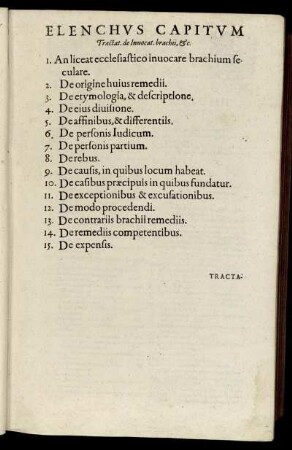 ELENCHVS CAPITVM
Tractat. de Inuocat. brachii, &c.
1. An liceat ecclesiastico inuocare brachium se-
culare.
2. De origine huius remedii.
3. De etymologia, & descriptione,
4. De eius diuisione.
5. De affinibus, & differentiis.
6. De personis Iudicum.
7. De personis partium.
8. De rebus.
9. De causis, in quibus locum habeat.
10. De casibus præcipuis in quibus fundatur.
11. De exceptionibus & excusationibus.
12. De modo procedendi.
13. De contrariis brachii remediis.
14. De remediis competentibus.
15. De expensis.
TRACTA-